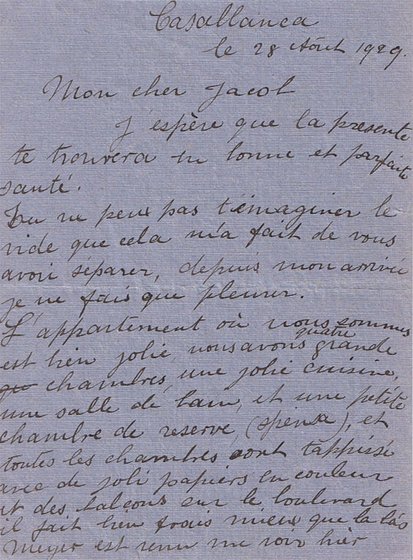 Casablanca
le 28 Août 1929.
Mon cher Jacob
J'espère que la presente
te trouvera en bonne et parfaite
santé.
Tu ne peux pas t'émaginer le
vide que cela m'a fait de vous
avoir séparer, depuis mon arrivée
je ne fais que pleurer.
L'appartement où nous sommes
est bien jolie, nous avons quatre grande
chambres, une jolie cuisine,
une salle de bain, et une petite
chambre de reserve, (spensa), et
toutes les chambres sont tappissé
avec de joli papiers en couleur
et des balcons sur le boulevard
il fait bien frais mieux que la bàs
Meyer est venu me voir hier